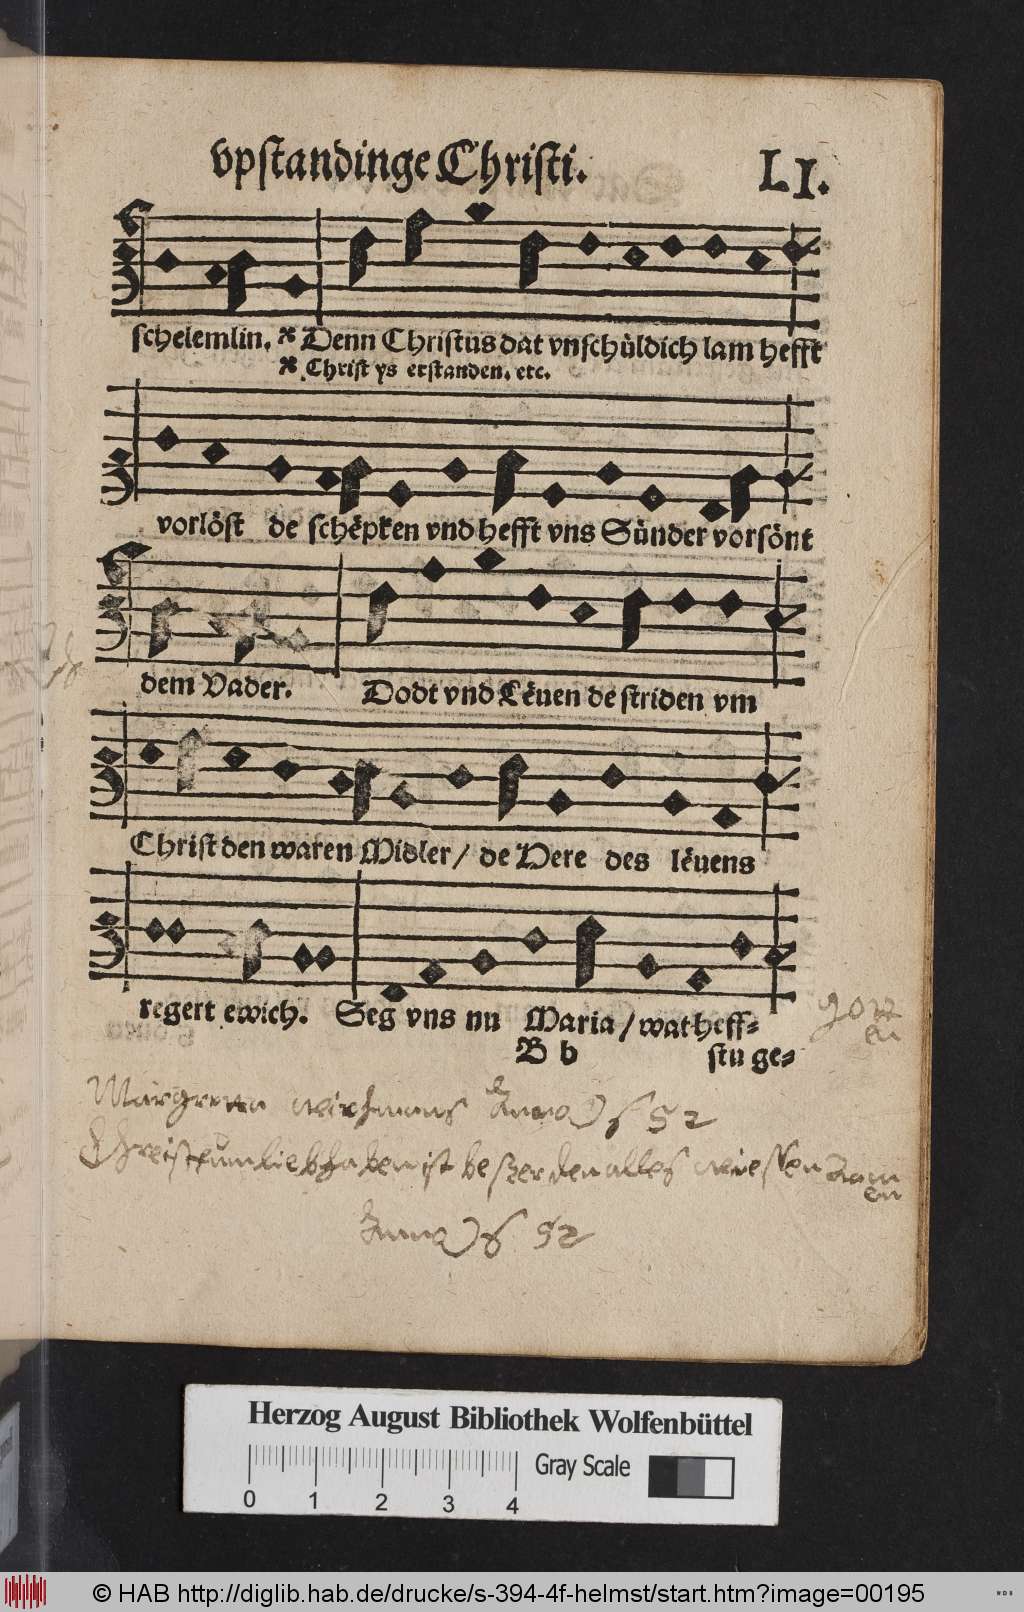 vpstandinge Christi. LI.
schelemlin. * Denn Christus dat vnschüldich lam hefft
* Christ ys erstanden. etc.
vorlöst de schëpken vnd hefft vns Sünder vorsönt
dem Vader. Dodt vnd Lëuen de striden vm
Christ den waren Midler / de Here des lëuens
regert ewich. Seg vns nu Maria / wat heff⸗
B b stu ge⸗
Anno 1652
Christum lieb haben ist beßer den alles wießen
Anno 1652
Herzog August Bibliothek Wolfenbüttel
0 1 2 3 4 Gray Scale
© HAB http://diglib.hab.de/drucke/s-394-4f-helmst/start.htm?image=00195